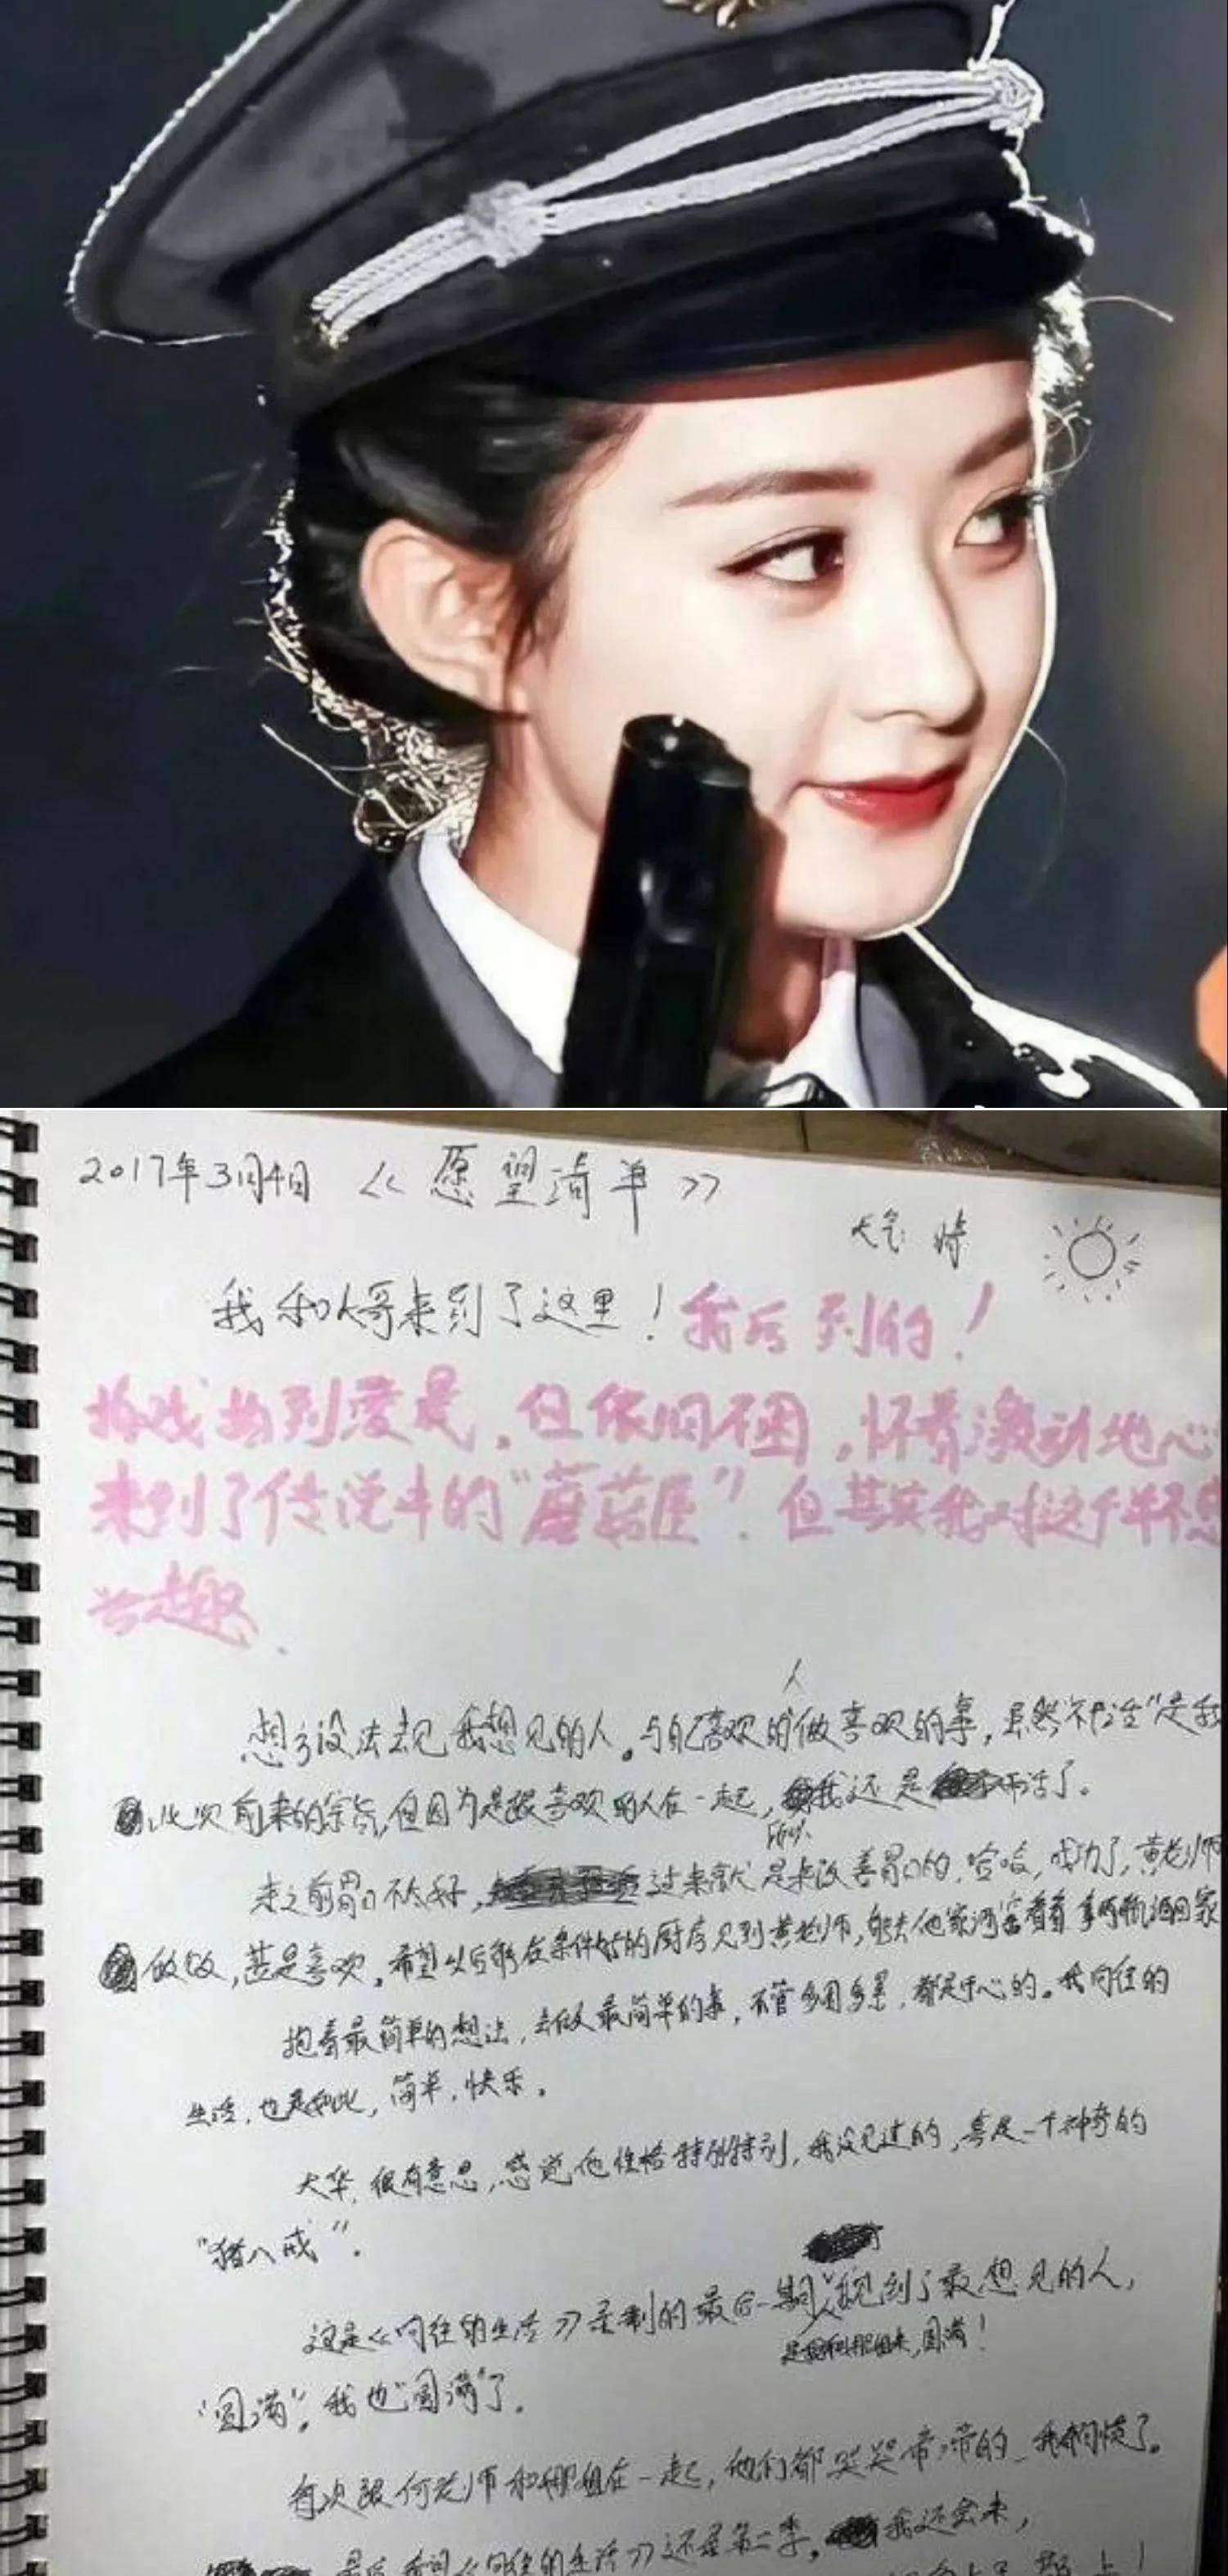 2017年3月4日 《愿望清单》
天气 晴
我和大哥来到了这里！我后到的！
拍戏拍到凌晨，但依旧不困，怀着激动地心
来到了传说中的“蘑菇屋”．但其实我对这个并不感
兴趣．
人
想方设法去见我想见的人。与自己喜欢的做喜欢的事，虽然“干活”是我
此次前来的宗旨，但因为是跟喜欢的人在一起，我还是干活了。
所以
来之前胃口不太好，过来就是来改善胃口的，哈哈，成功了，黄老师
做饭，甚是喜欢。希望以后能在条件好的厨房见到黄老师，能去他家酒窖看看拿两瓶酒回家
抱着最简单的想法，去做最简单的事，不管多困多累，都是开心的。我向往的
生活，也是如此，简单，快乐。
大华，很有意思，感觉他性格特别特别，我没见过的，真是一个神奇的
“猪八戒”．
这是《向往的生活》录制的最后一期，我见到了最想见的人，
圆满！
“圆满”。我也“圆满”了。
每次跟何老师和娜姐在一起，他们都哭哭啼啼的
《向往的生活》还是第二季，我还会来，